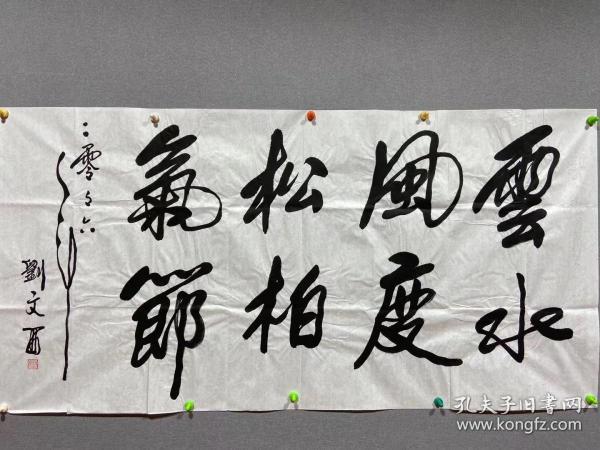 雲水
風度
松柏
氣節
二零零六
劉文西
孔夫子旧書网
www.kongfz.com